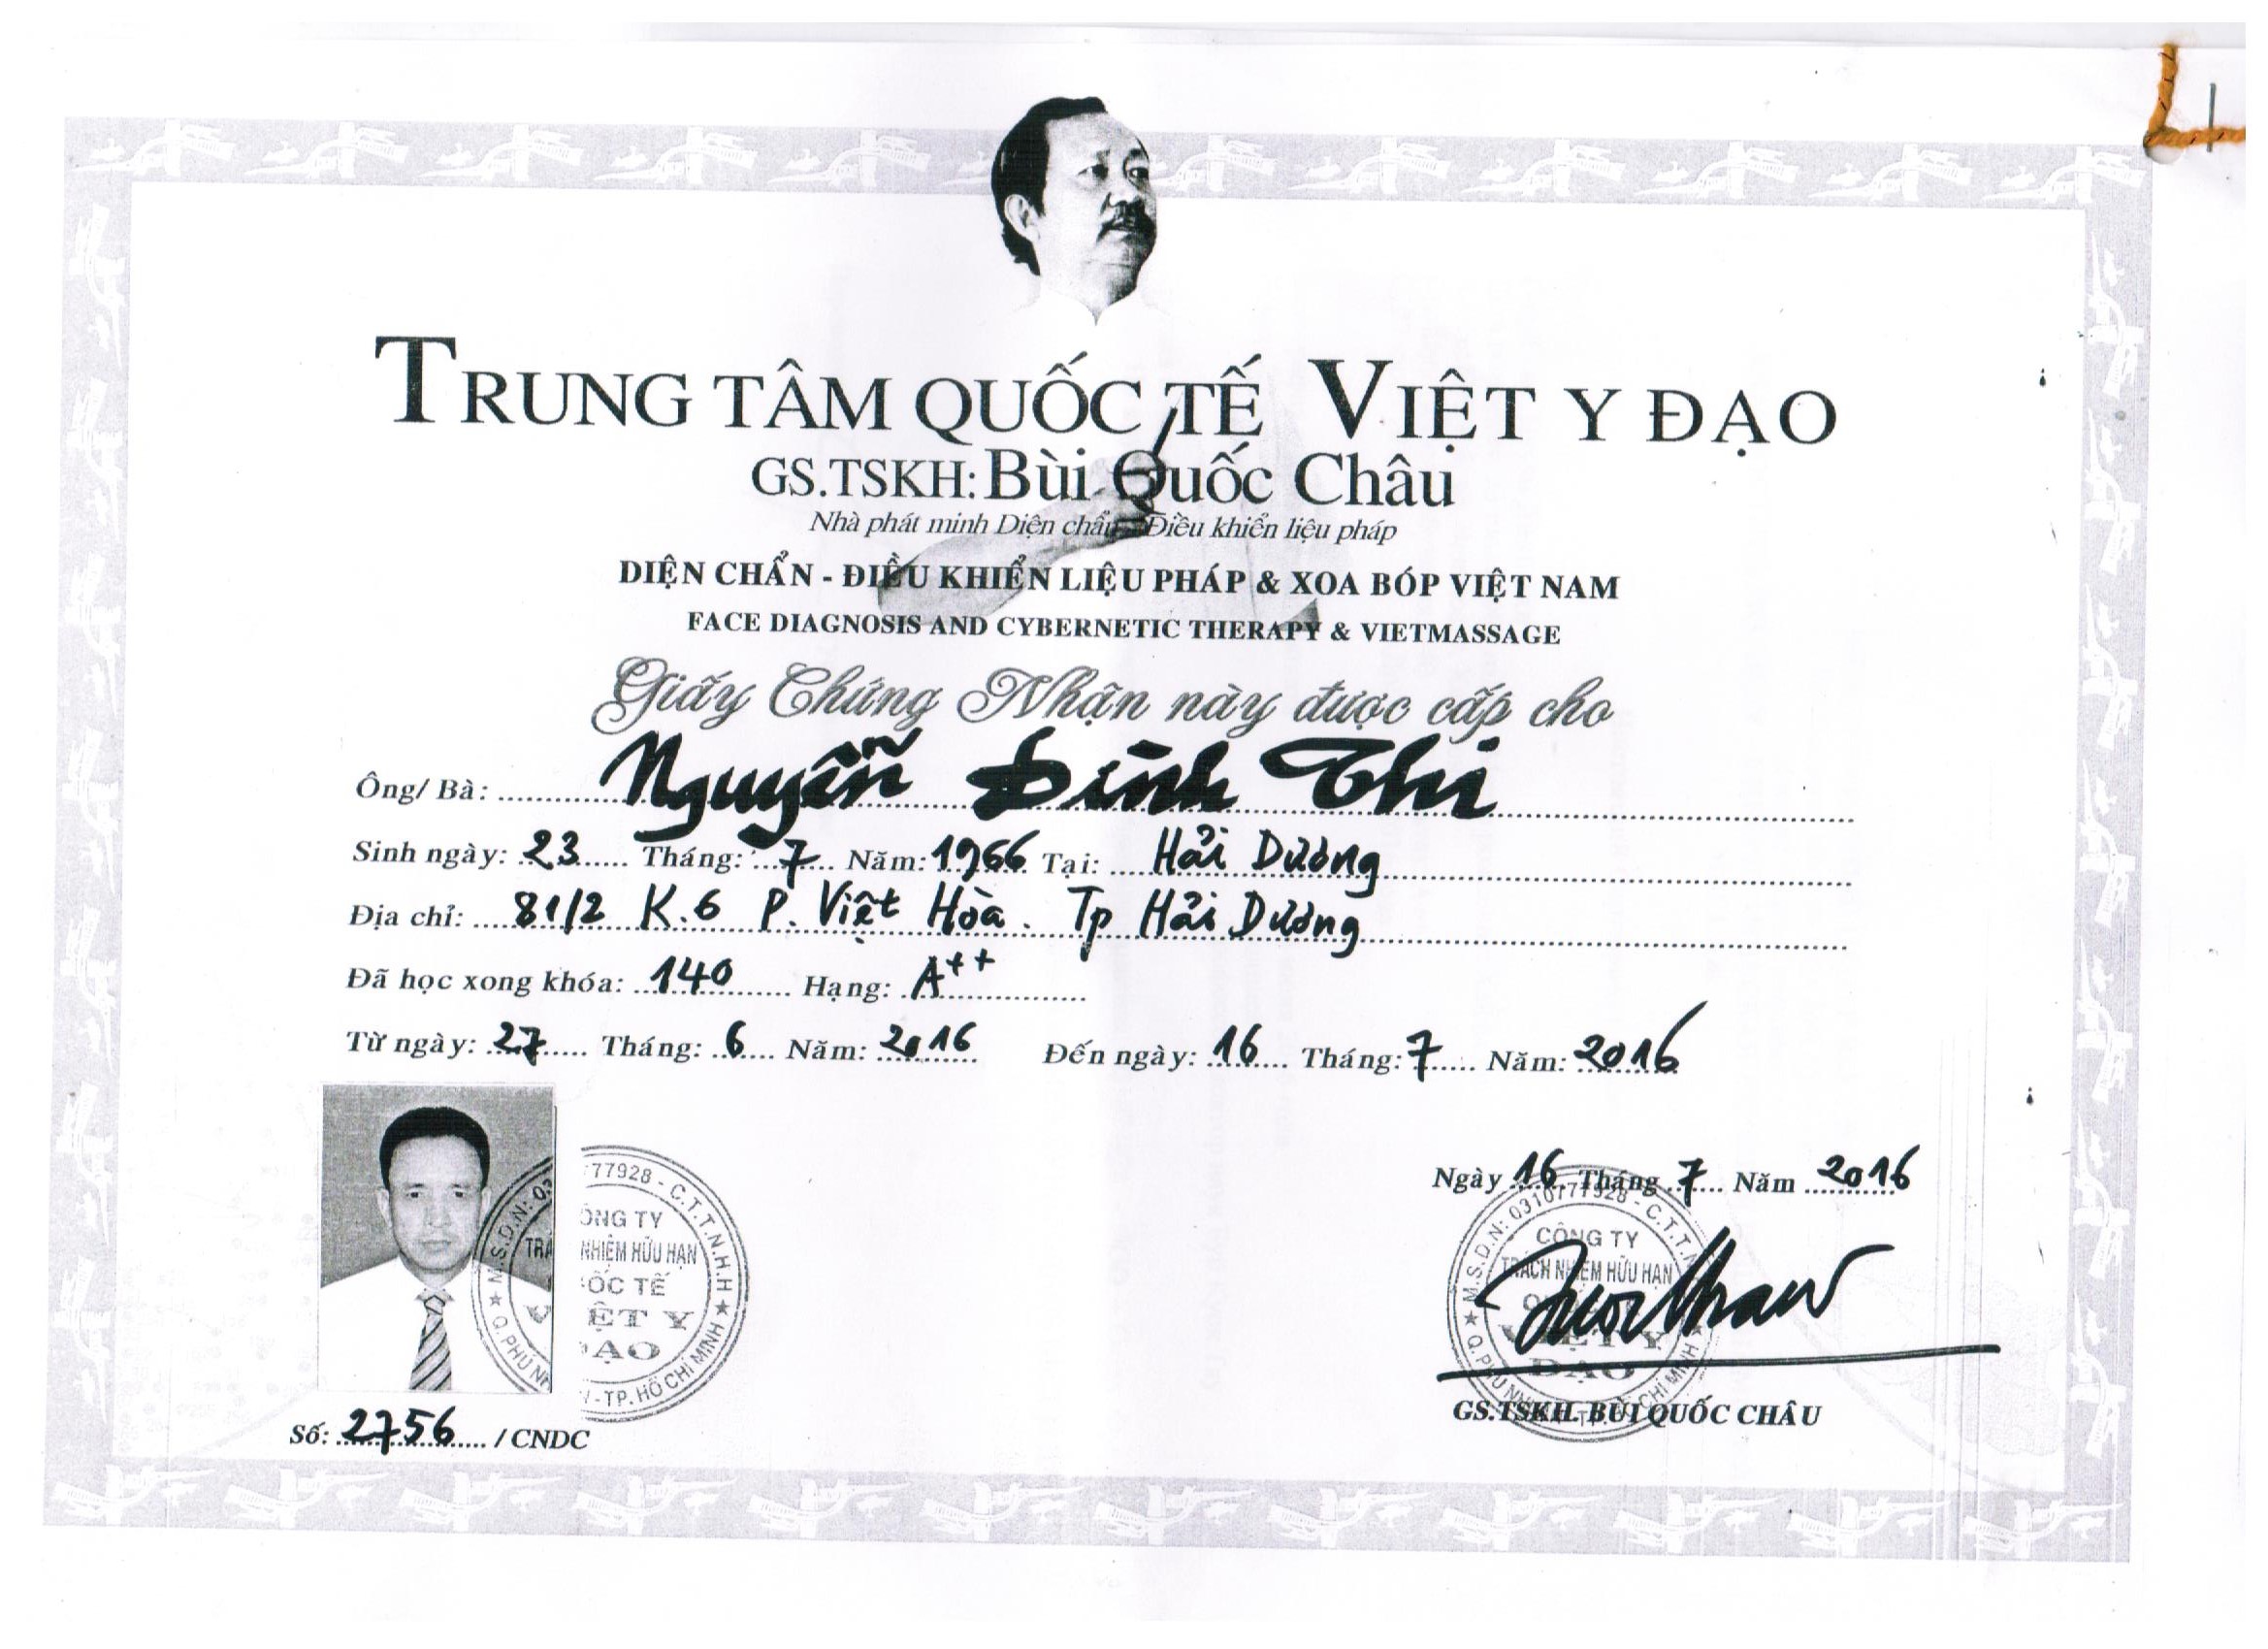 TRUNG TÂM QUỐC TẾ VIỆT Y ĐẠO
GS.TSKH: Bùi Quốc Châu
Nhà phát minh Diện chẩn - Điều khiển liệu pháp
DIỆN CHẨN - ĐIỀU KHIỂN LIỆU PHÁP & XOA BÓP VIỆT NAM
FACE DIAGNOSIS AND CYBERNETIC THERAPY & VIETMASSAGE
Giấy Chứng Nhận này được cấp cho
Ông/ Bà: Nguyễn Đình Thi
Sinh ngày: 23 Tháng: 7 Năm: 1966 Tại: Hải Dương
Địa chỉ: 81/2 K.6 P. Việt Hòa. Tp Hải Dương
Đã học xong khóa: 140 Hạng: A++
Từ ngày: 27 Tháng: 6 Năm: 2016 Đến ngày: 16 Tháng: 7 Năm: 2016
Ngày 16 Tháng 7 Năm 2016
M.S.D.N: 0310777928 - C.T.T
CÔNG TY
TRÁCH NHIỆM HỮU HẠN
VIỆT Y
ĐẠO
GS.TSKH. BÙI QUỐC CHÂU
M.S.D.N: 0 77928 - C.T.T.N.H.H
ÔNG TY
TRÁ NHIỆM HỮU HẠN
ỐC TẾ
V ỆT Y
ĐẠO
Q.PHÚ NH - TP. HỒ CHÍ MINH
Số: 2756 / CNDC